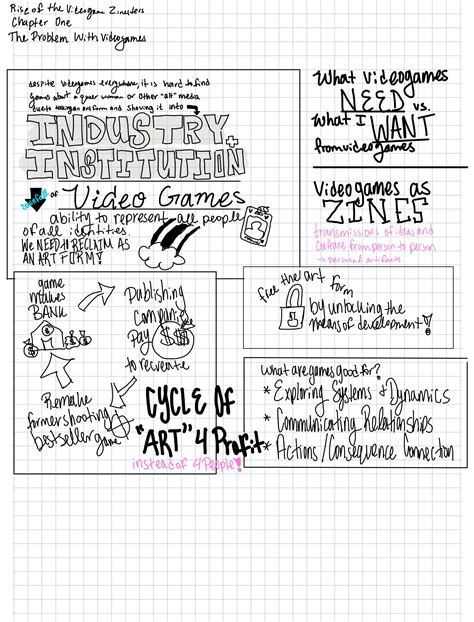 Rise of the Videogame Zinesters
Chapter One
The Problem With Videogames
despite videogames everywhere, it is hard to find
games about a queer woman or other "alt" media
due to taking an art form and shoving it into
INDUSTRY +
INSTITUTION
Downfall of Video Games
ability to represent all people
of all identities.
WE NEED TO RECLAIM AS
AN ART FORM!
What Videogames
NEED vs.
What I WANT
from videogames
Videogames as
ZINES
transmissions of ideas and
culture from person to person
→ personal artifacts
game
makes
BANK
Publishing
Company
Pay
$ $
to recreate
Remake
former shooting
bestseller game
CYCLE OF
"ART" 4 Profit
instead of 4 People!
free the art form
by unlocking the
means of development!
What are games good for?
* Exploring Systems & Dynamics
* Communicating Relationships
* Actions/Consequence Connection